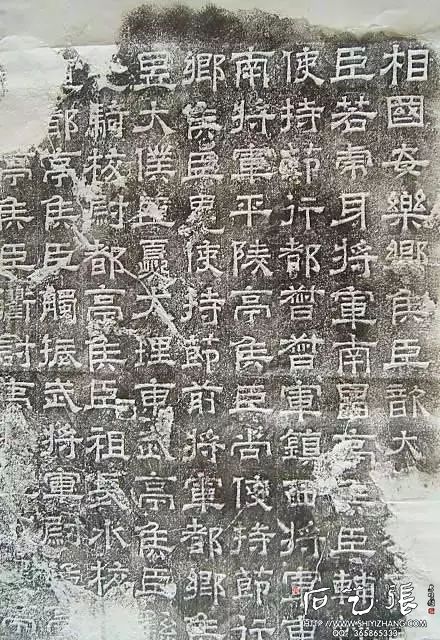 相國安樂鄉侯臣歆大
臣若虎牙將軍南昌亭侯臣輔
使持節行都督督軍鎮西將軍
南將軍平陵亭侯臣尚使持節行
鄉侯臣晃使持節前將軍都鄉侯
昱大僕臣夔大理東武亭侯臣
騎校尉都亭侯臣祖長水校
都亭侯臣觸振武將軍尉
亭侯臣衢討夷
石艺張
WWW.SHIYIZHANG.COM
QQ: 365865333